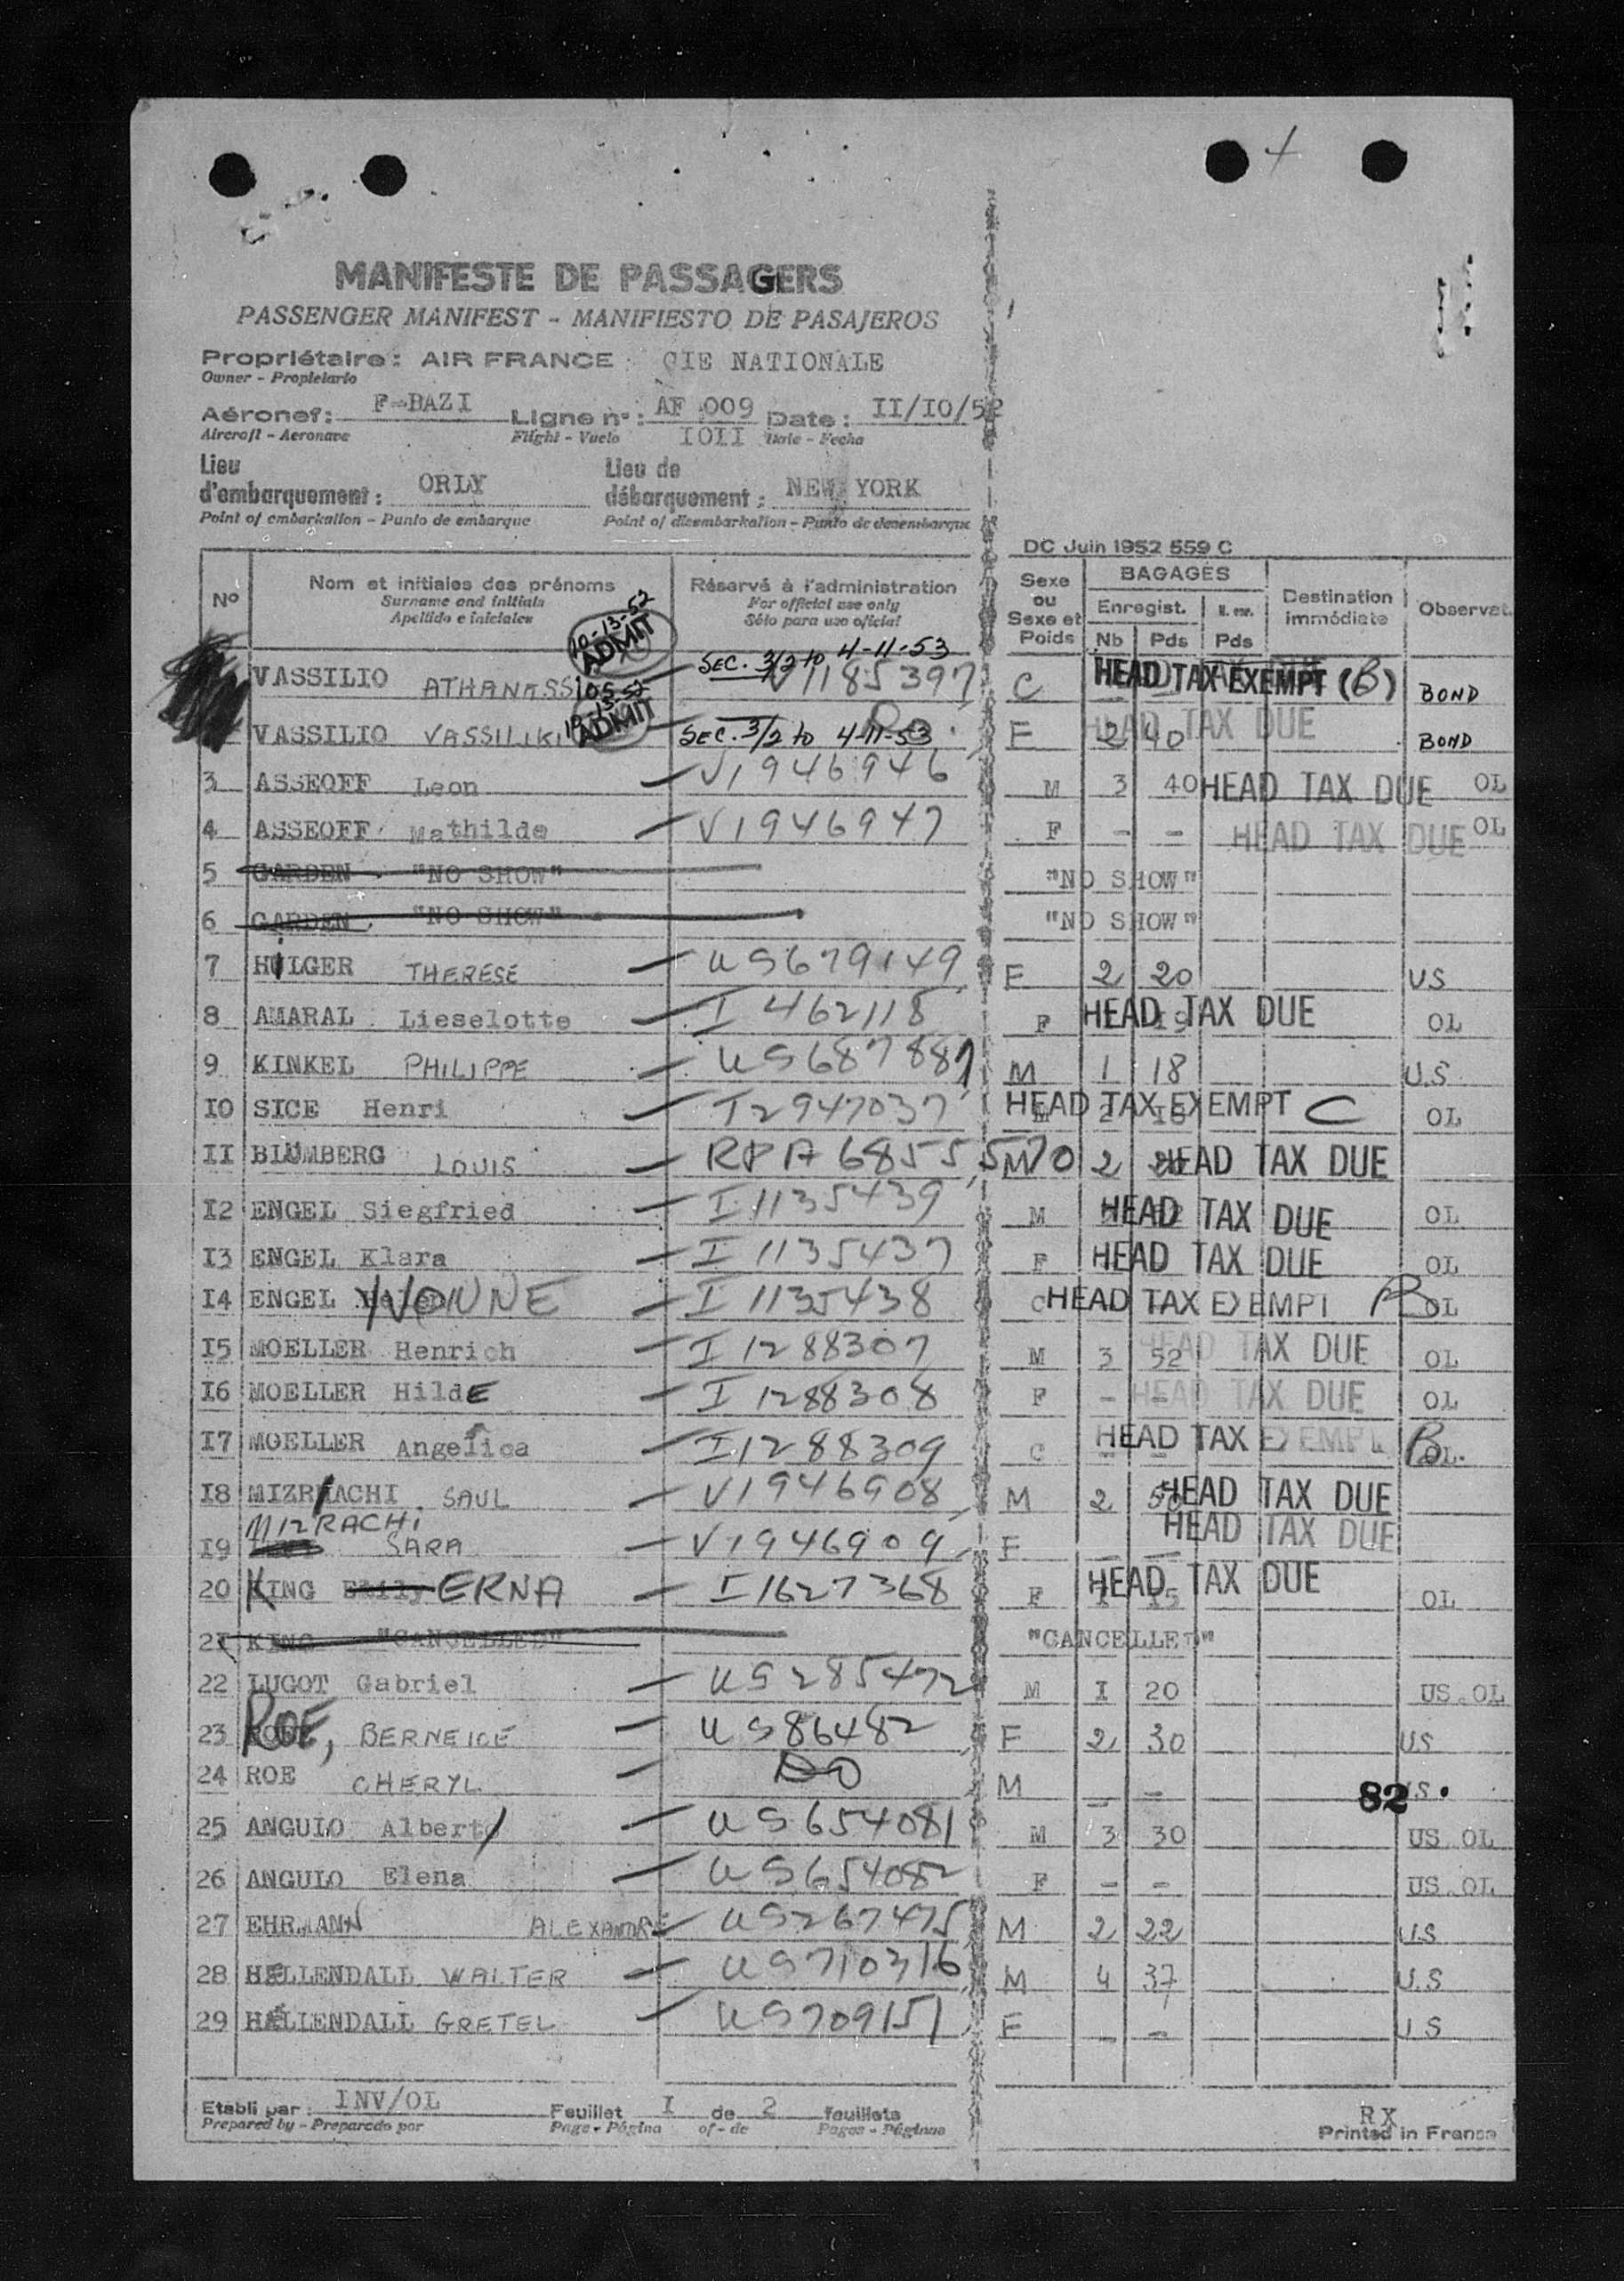 4
MANIFESTE DE PASSAGERS
PASSENGER MANIFEST - MANIFIESTO DE PASAJEROS
Propriétaire : AIR FRANCE CIE NATIONALE
Owner - Propietario
Aéronef : F-BAZI Ligne n° : AF 009 Date : II/IO/52
Aircraft - Aeronave Flight - Vuelo IOII Date - Fecha
Lieu d'embarquement : ORLY Lieu de débarquement : NEW YORK
Point of embarkation - Punto de embarque Point of disembarkation - Punto de desembarque
DC Juin 1952 559 C
N° Nom et initiales des prénoms Réservé à l'administration Sexe ou Sexe et Poids BAGAGES Destination immédiate Observat.
Surname and initials For official use only Enregist. N. enr.
Apellido e iniciales Sólo para uso oficial Nb Pds Pds
10-13-52 ADMIT SEC. 3/2 to 4-11-53
VASSILIO ATHANASSIOS V1185397 C HEAD TAX EXEMPT (B) BOND
10-13-52 ADMIT Do
VASSILIO VASSILIKI SEC. 3/2 to 4-11-53 F 2 40 HEAD TAX DUE BOND
3 ASSEOFF Leon V1946946 M 3 40 HEAD TAX DUE OL
4 ASSEOFF Mathilde V1946947 F - - HEAD TAX DUE OL
5 GARDEN "NO SHOW" "NO SHOW"
6 GARDEN "NO SHOW" "NO SHOW"
7 HILGER THERESE US679149 F 2 20 US
8 AMARAL Lieselotte I 462118 F HEAD TAX DUE OL
9 KINKEL PHILIPPE US687887 M 1 18 U.S
IO SICE Henri I2947037 M HEAD TAX EXEMPT C OL
II BLUMBERG LOUIS RPA 68555570 M 2 HEAD TAX DUE
I2 ENGEL Siegfried I 1135439 M HEAD TAX DUE OL
I3 ENGEL Klara I 1135437 F HEAD TAX DUE OL
I4 ENGEL YVONNE I 1135438 C HEAD TAX EXEMPT B OL
I5 MOELLER Henrich I 1288307 M 3 52 HEAD TAX DUE OL
I6 MOELLER HildE I 1288308 F - - HEAD TAX DUE OL
I7 MOELLER Angelica I 1288309 C - - HEAD TAX EXEMPT B OL.
I8 MIZRACHI SAUL V1946908 M 2 50 HEAD TAX DUE
MIZRACHI HEAD TAX DUE
I9 SARA V1946909 F - -
20 KING Emily ERNA I1627368 F I I5 HEAD TAX DUE OL
2I KING "CANCELLED" "CANCELLED"
22 LUGOT Gabriel US285472 M I 20 US OL
23 ROE, BERNEICE US86482 F 2 30 US
24 ROE CHERYL DO M - - 82 U.S.
25 ANGUIO Albert US654081 M 3 30 US OL
26 ANGULO Elena US654082 F - - US OL
27 EHRMANN ALEXANDRE US267475 M 2 22 U.S
28 HELLENDALL WALTER US710316 M 4 37 U.S
29 HELLENDALL GRETEL US709151 F - - U S
Etabli par : INV/OL Feuillet I de 2 feuillets RX
Prepared by - Preparado por Page - Página of - de Pages - Páginas Printed in France